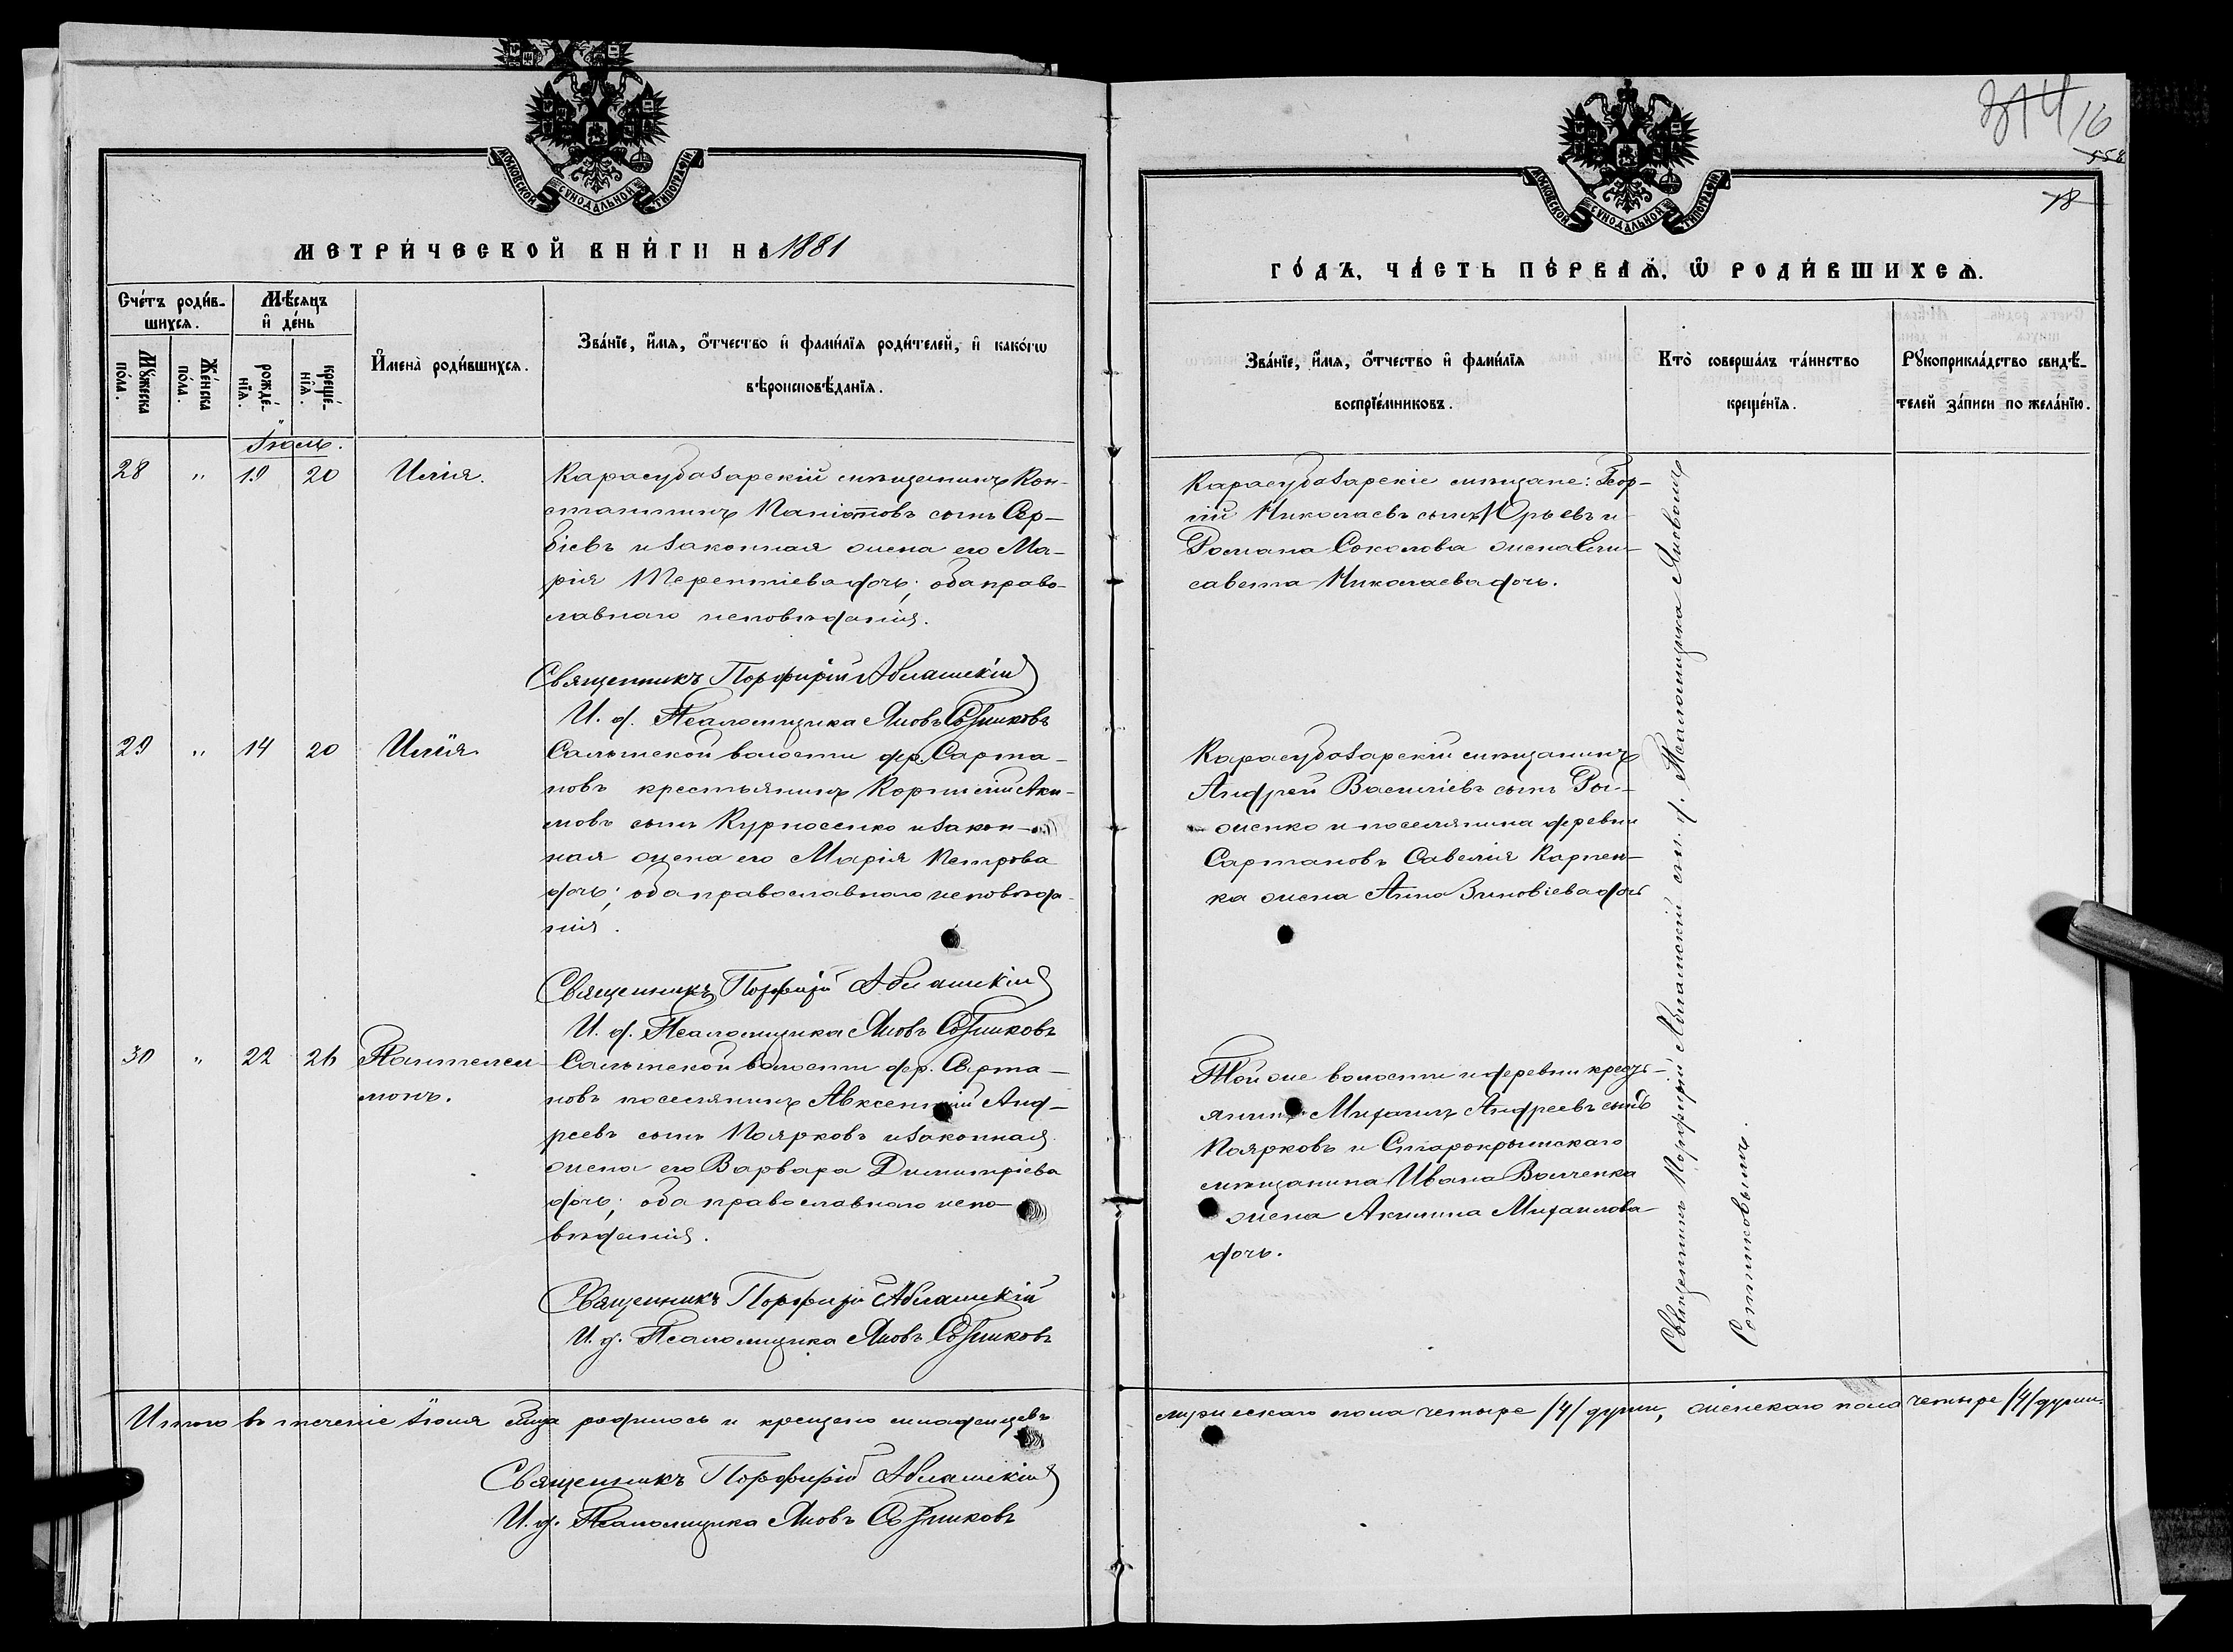 МОСКОВСКОЙ СУНОДАЛЬНОЙ ТИПОГРАФІИ
МЕТРИ́ЧЕСКОЙ КНИ́ГИ НА 1881
Сче́тъ роди́в-
шихсѧ.
Мѣ́сѧцъ
и҆ де́нь
Мꙋ́жеска
по́ла.
Же́нска
по́ла.
рожде́-
нїѧ.
креще́-
нїѧ.
И҆мена̀ роди́вшихсѧ.
Зва́нїе, и҆́мѧ, ѻ҆́тчество и҆ фами́лїѧ роди́телей, и҆ како́гѡ
вѣроисповѣ́данїѧ.
Іюль.
28 " 19 20 Илія.
Карасубазарскій мѣщанинъ Кон-
стантинъ сынъ Сер-
біевъ и законная жена его Ма-
рія Терентіева дочь; оба право-
славнаго исповѣданія.
Священникъ Порфирій Аблашскій
И. д. Псаломщика Яковъ Сотниковъ
29 " 14 20 Илія.
Салынской волости дер. Сарта-
новъ крестьянинъ Корнилій Аки-
мовъ сынъ Курносенко и закон-
ная жена его Марія Петрова
дочь; оба православнаго исповѣда-
нія.
Священникъ Порфирій Аблашскій
И. д. Псаломщика Яковъ Сотниковъ
30 " 22 26 Пантелеи-
монъ.
Салынской волости дер. Сарта-
новъ поселянинъ Авксентій Анд-
реевъ сынъ Поярковъ и законная
жена его Варвара Димитріева
дочь; оба православнаго испо-
вѣданія.
Священникъ Порфирій Аблашскій
И. д. Псаломщика Яковъ Сотниковъ
Итого въ теченіе іюля м-ца родилось и крещено младенцевъ
Священникъ Порфирій Аблашскій
И. д. Псаломщика Яковъ Сотниковъ
16
558
18
МОСКОВСКОЙ СУНОДАЛЬНОЙ ТИПОГРАФІИ
ГО́ДЪ, ЧА́СТЬ ПЕ́РВАѦ, Ѡ҆ РОДИ́ВШИХСѦ.
Зва́нїе, и҆́мѧ, ѻ҆́тчество и҆ фами́лїѧ
воспрїе́мниковъ.
Кто̀ соверша́лъ та́инство
креще́нїѧ.
Рꙋкоприкла́дство свидѣ́-
телей за́писи по жела́нїю.
Карасубазарскіе мѣщане: Геор-
гій Николаевъ сынъ Юрьевъ и
Романа Соколова жена Ели-
савета Николаева дочь.
Карасубазарскій мѣщанинъ
Андрей Василіевъ сынъ Рои-
женко и поселянина деревни
Сартановъ Савелія Карпен-
ка жена Анна Зиновіева дочь
Той же волости и деревни кресть-
янинъ Михаилъ Андреевъ сынъ
Поярковъ и Старокрымскаго
мѣщанина Ивана Волченка
жена Акилина Михаилова
дочь.
Священникъ Порфирій Аблашскій съ и. д. Псаломщика Яковомъ
Сотниковымъ.
мужескаго пола четыре /4/ души, женскаго пола четыре /4/ души.